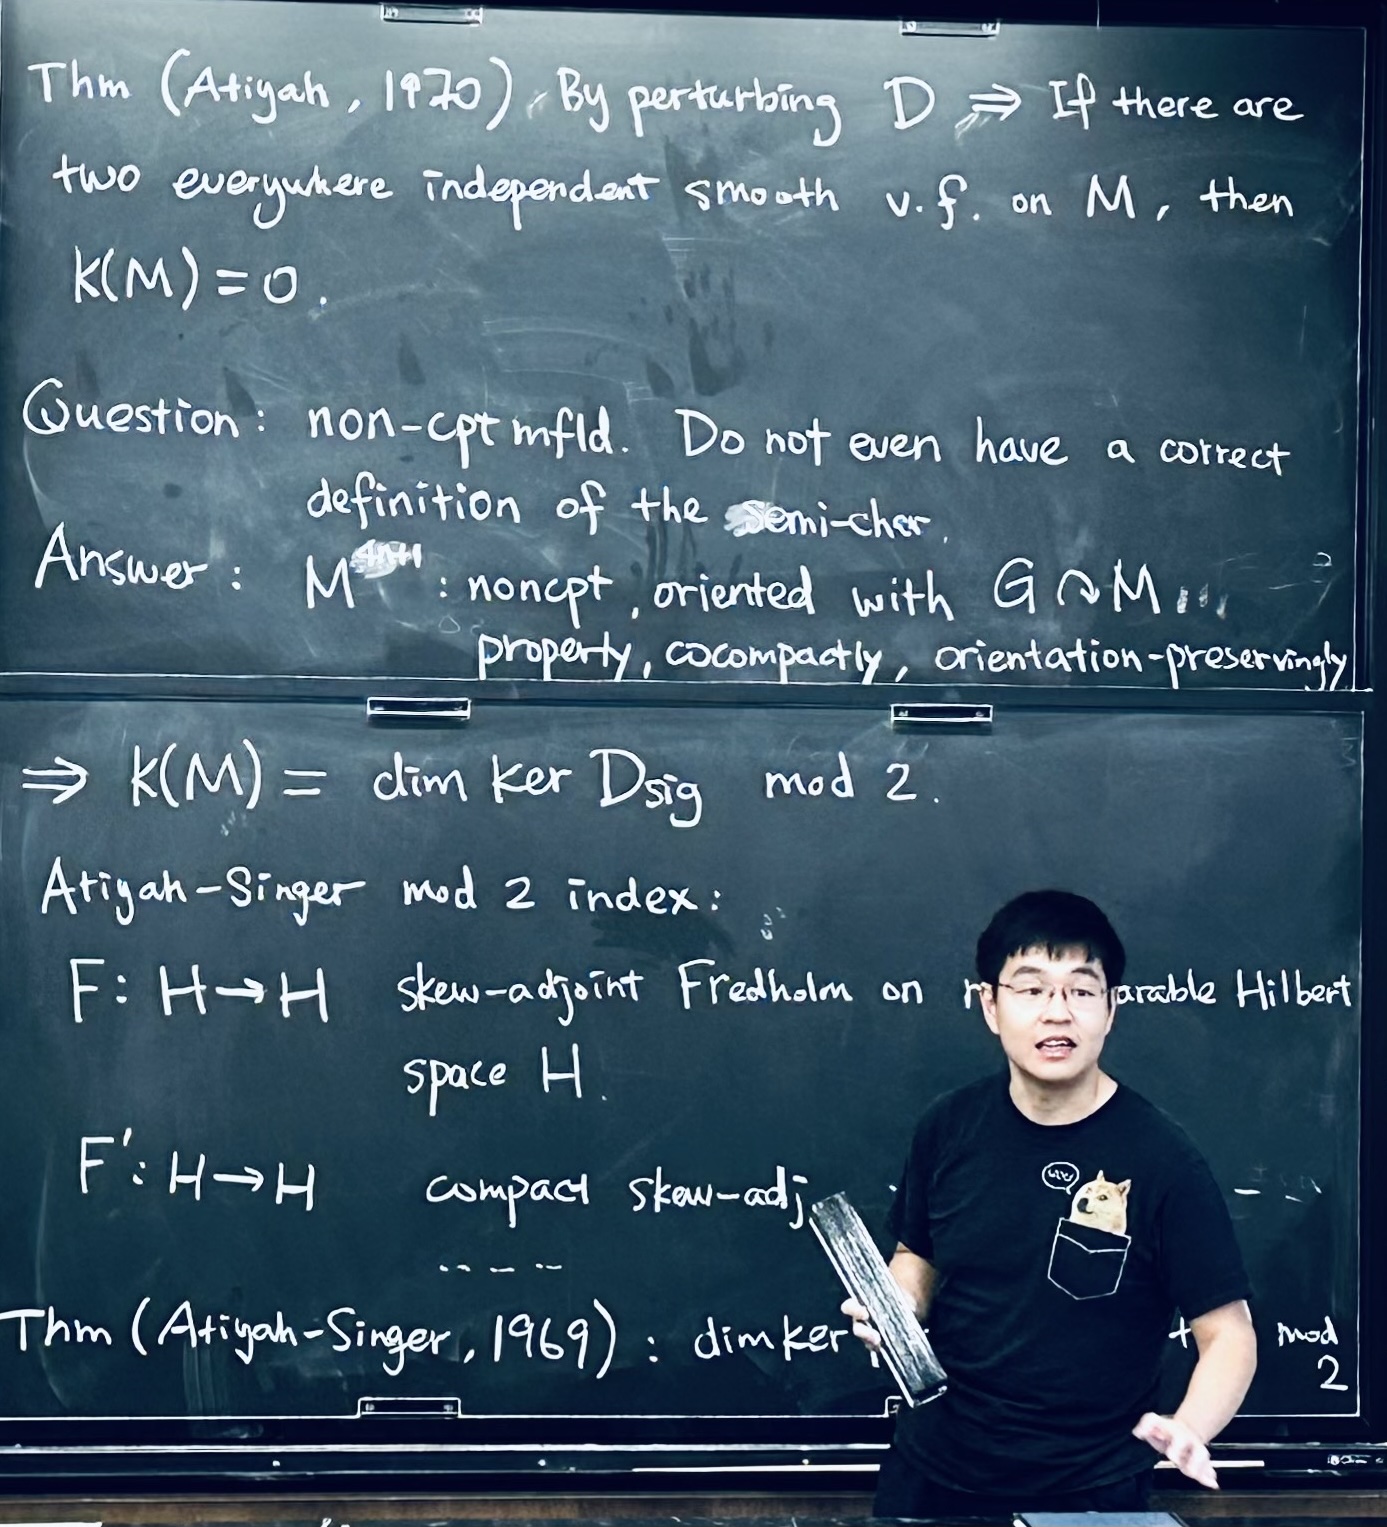 Thm (Atiyah, 1970). By perturbing D ⇒ If there are
two everywhere independent smooth v.f. on M, then
K(M) = 0.
Question: non-cpt mfld. Do not even have a correct
definition of the semi-char.
Answer: M⁴ⁿ⁺¹: noncpt, oriented with G ↷ M
properly, cocompactly, orientation-preservingly
⇒ K(M) = dim ker Dsig mod 2.
Atiyah-Singer mod 2 index:
F: H → H skew-adjoint Fredholm on Hilbert
space H.
F': H → H compact skew-adj.
.. -- --
Thm (Atiyah-Singer, 1969): dim ker + mod
2